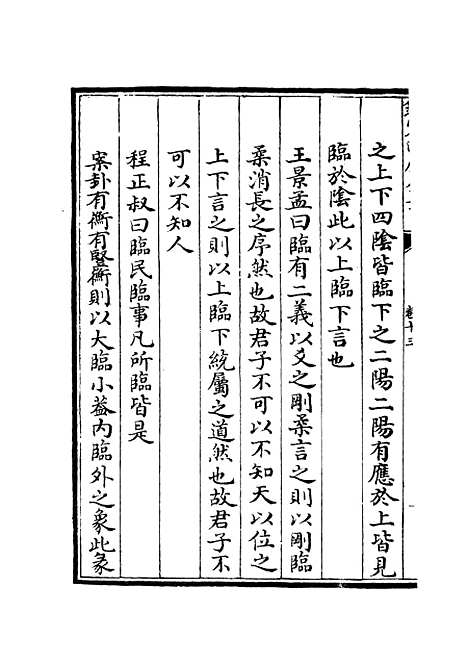 之上下四陰皆臨下之二陽二陽有應於上皆見
臨於陰此以上臨下言也
王景孟曰臨有二義以爻之剛柔言之則以剛臨
柔消長之序然也故君子不可以不知天以位之
上下言之則以上臨下統屬之道然也故君子不
可以不知人
程正叔曰臨民臨事凡所臨皆是
案卦有衡有豎衡則以大臨小葢内臨外之象此彖
卷十三